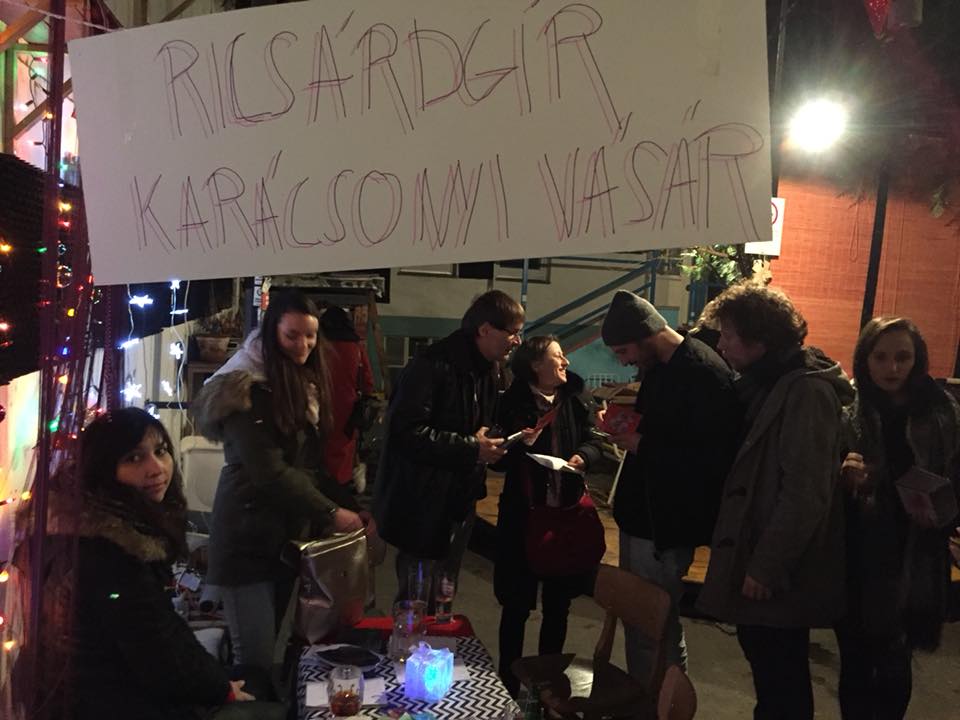 RICSÁRDGÍR
KARÁCSONYI VÁSÁR